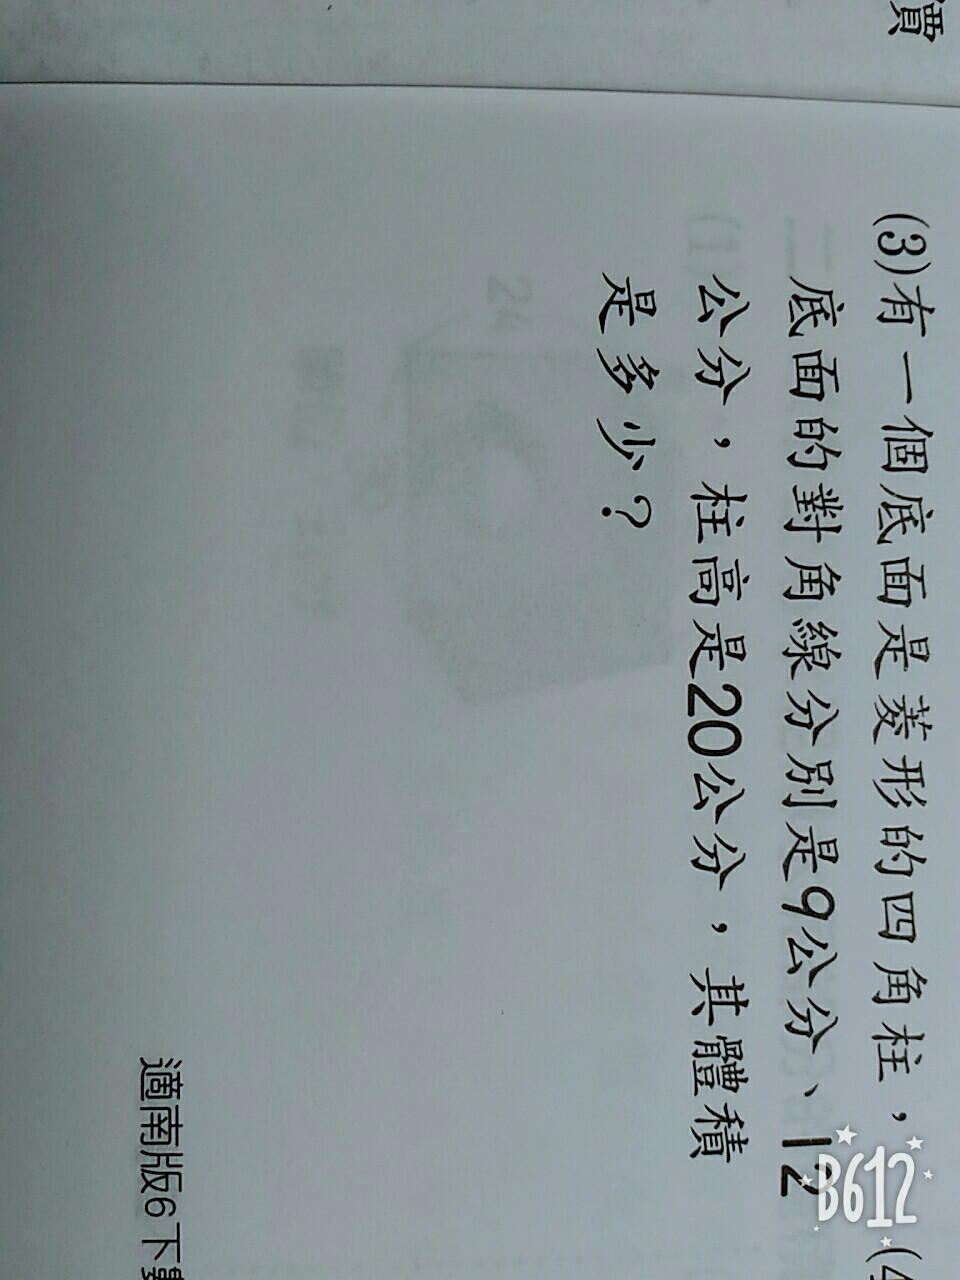 價
(3)有一個底面是菱形的四角柱，
底面的對角線分別是9公分、12
公分，柱高是20公分，其體積
是多少？
24
(1)
二
適南版6下
B612